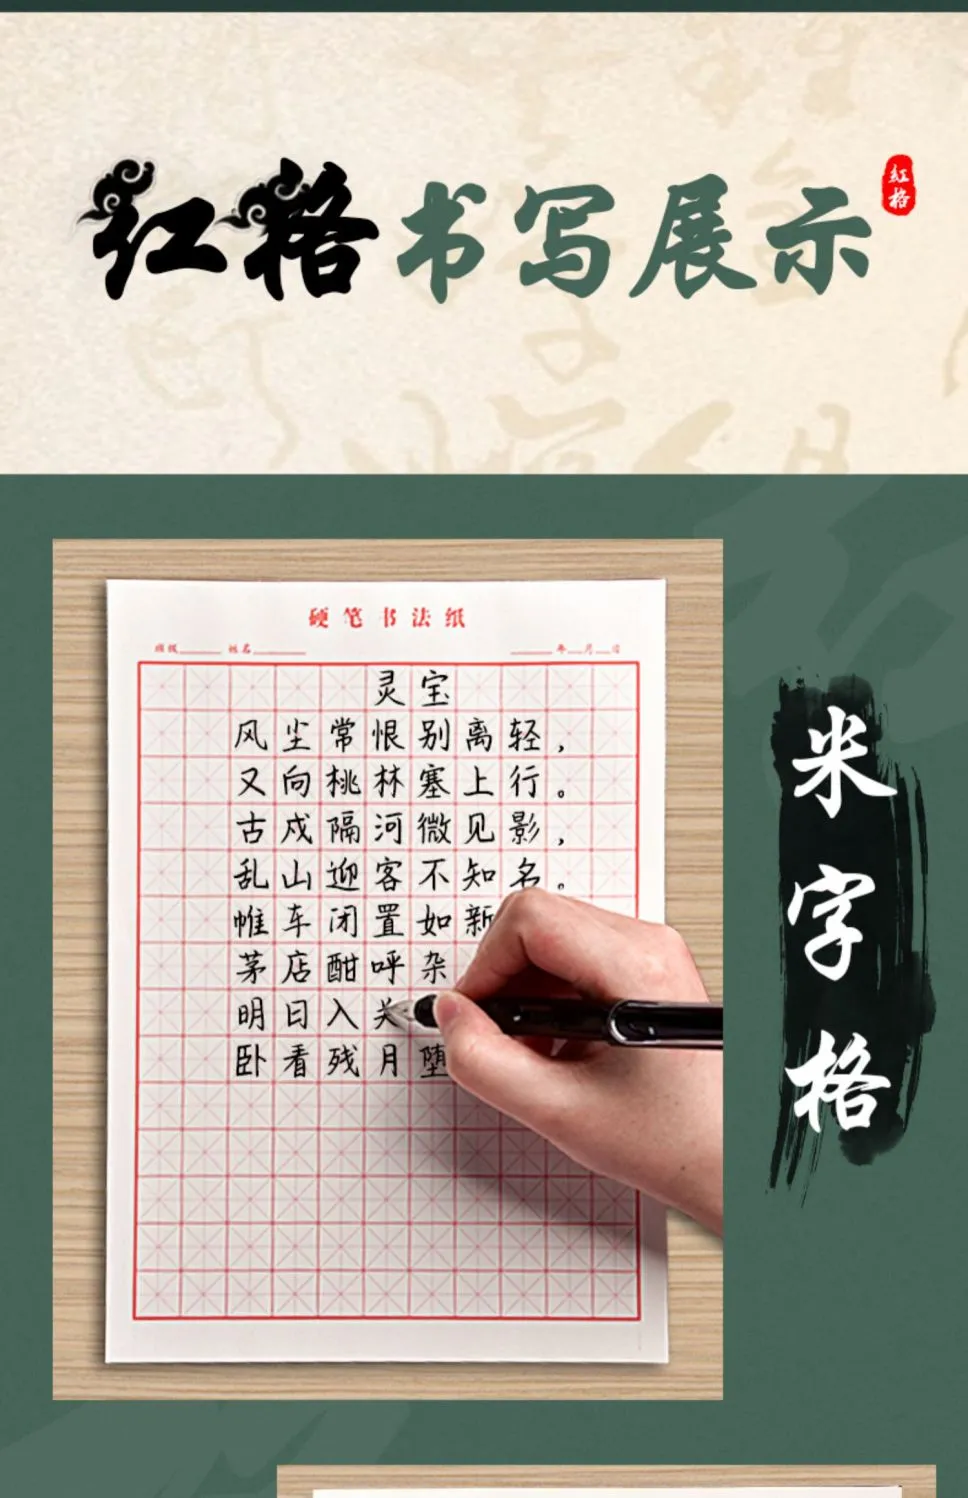 红格书写展示
紅格
硬笔书法纸
班级 姓名 年 月 日
灵宝
风尘常恨别离轻，
又向桃林塞上行。
古戍隔河微见影，
乱山迎客不知名。
帷车闭置如新
茅店酣呼杂
明日入关
卧看残月堕
米字格